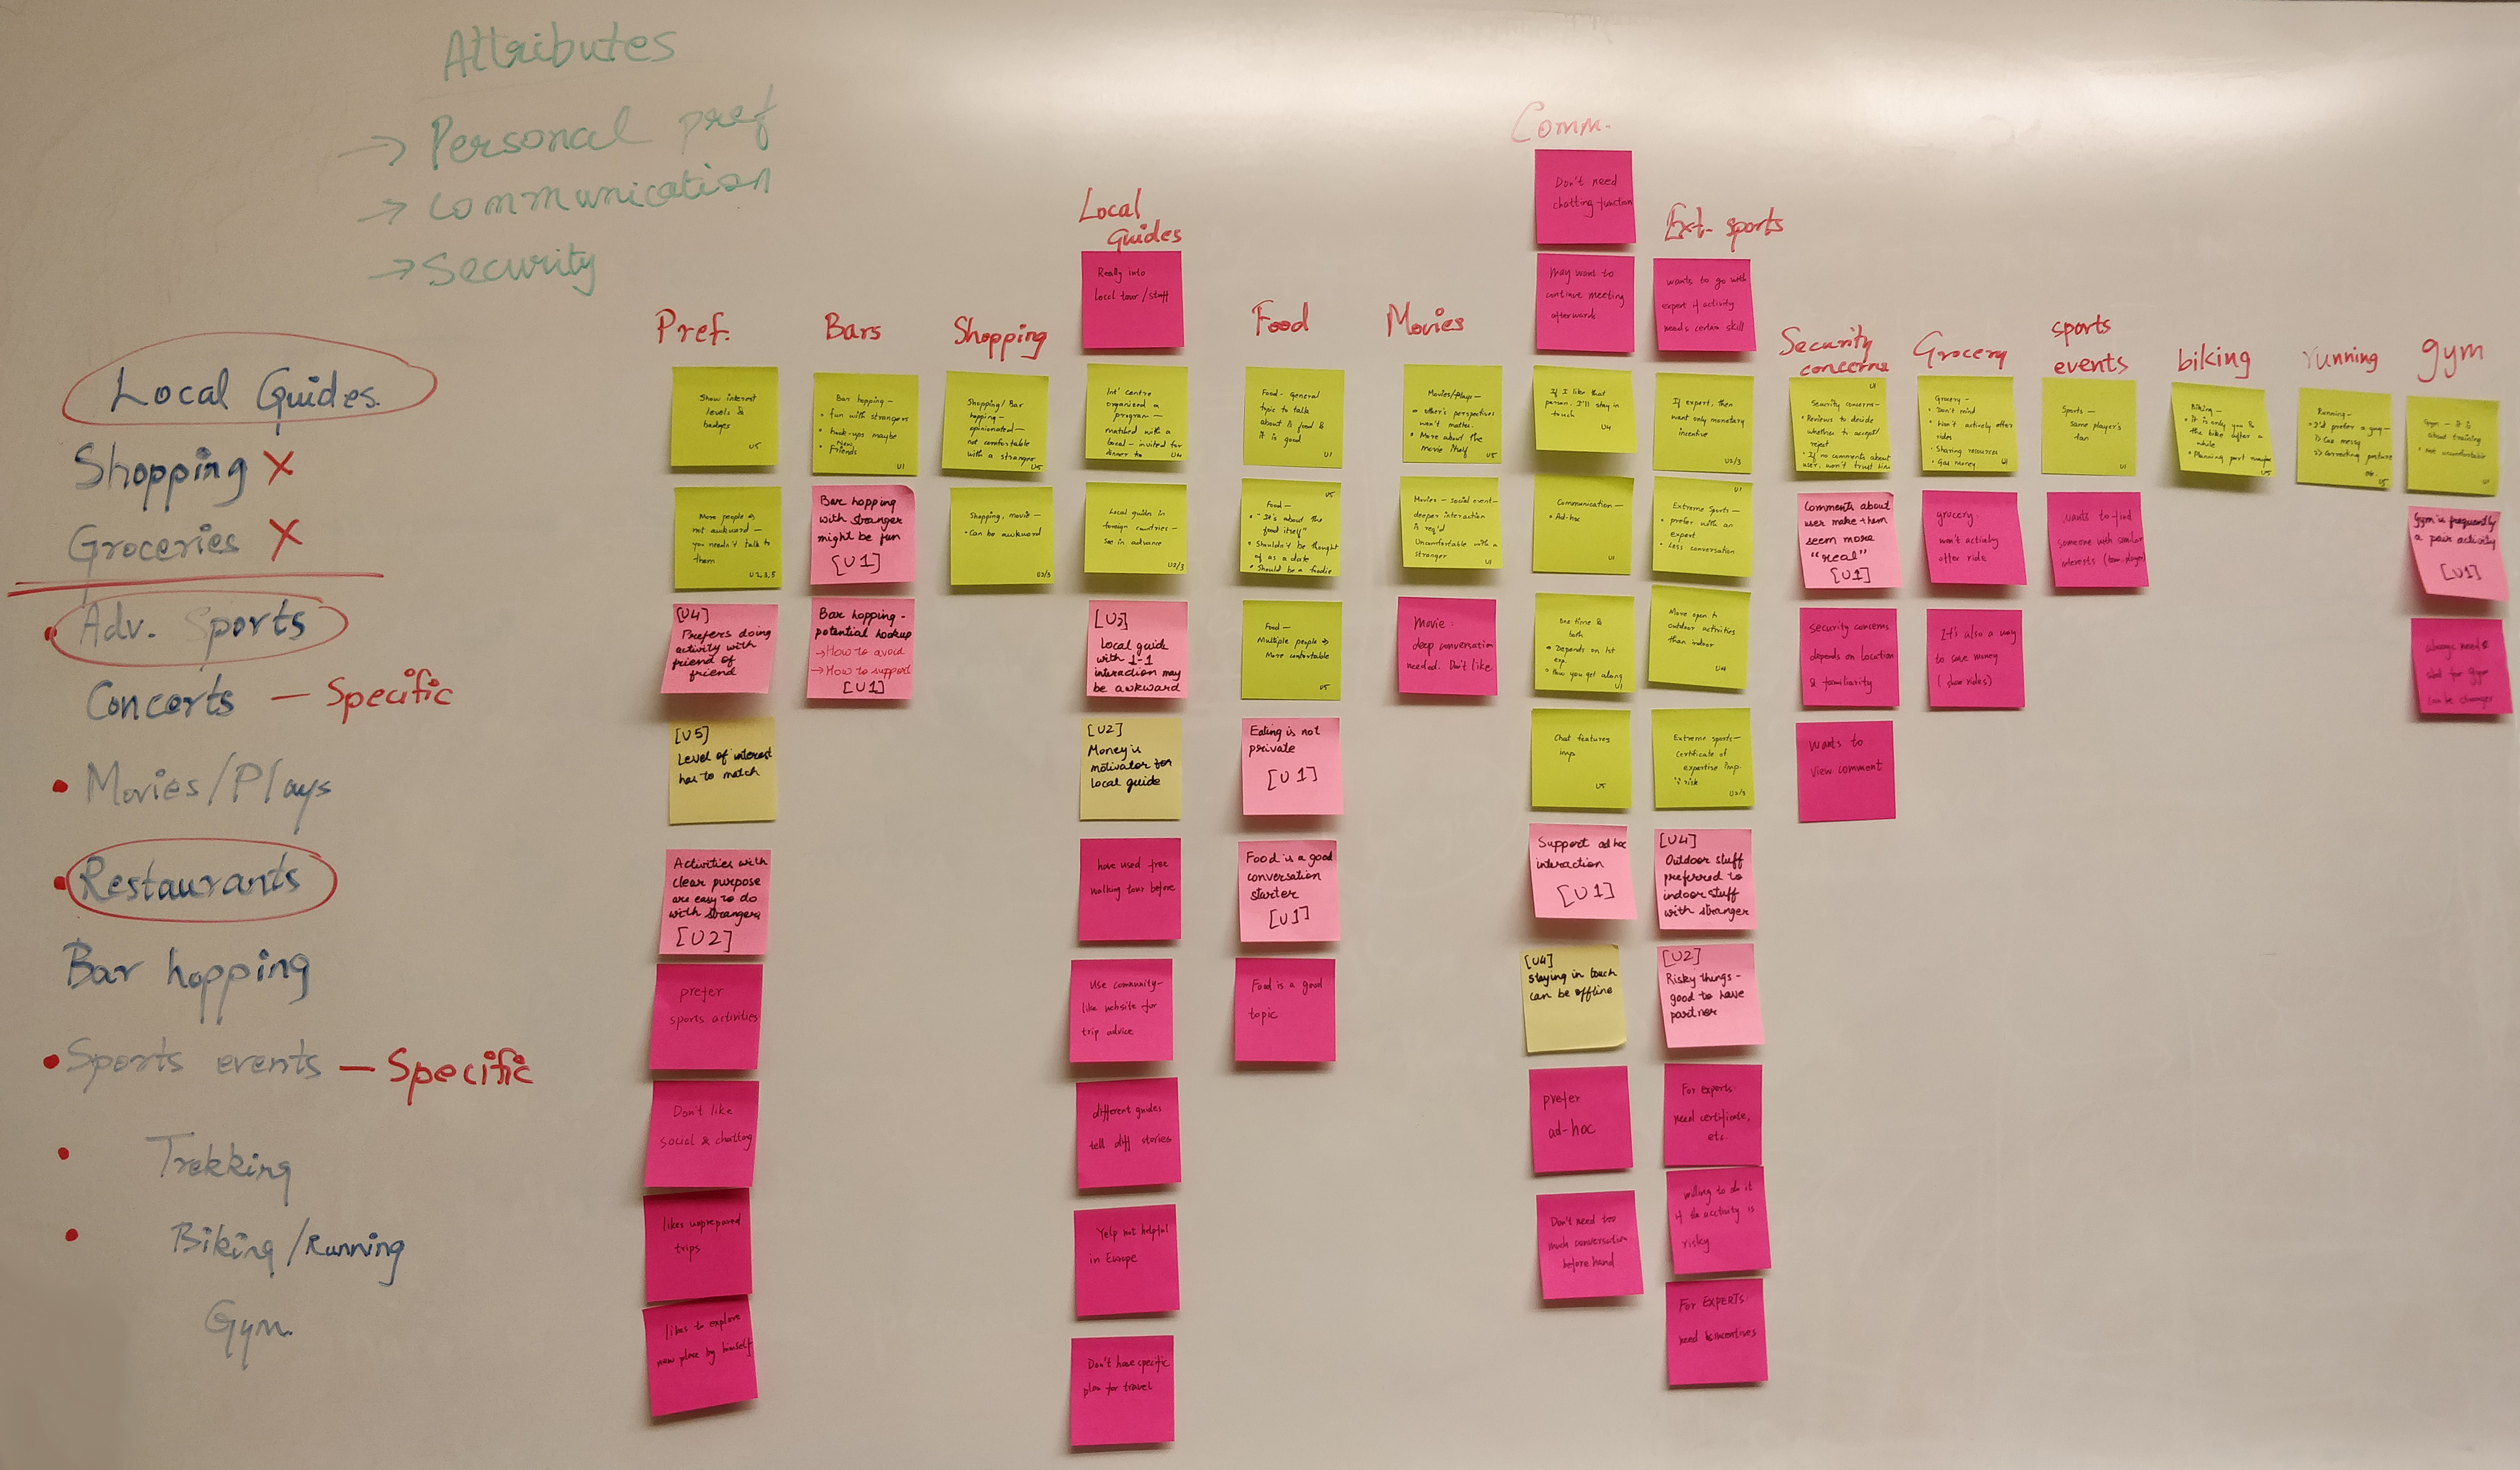 Attributes
→ Personal pref
→ Communication
→ Security
Local Guides.
Shopping X
Groceries X
Adv. Sports
Concerts — Specific
Movies/Plays
Restaurants
Bar hopping
Sports events — Specific
Trekking
Biking/Running
Gym.
Pref.
Show interest
levels &
badges
U5
More people →
not awkward —
you needn't talk to
them
U2,3,5
[U4]
Prefers doing
activity with
friend of
friend
[U5]
Level of interest
has to match
Activities with
clear purpose
are easy to do
with strangers
[U2]
prefer
sports activities
Don't like
social & chatting
likes unprepared
trips
likes to explore
new place by himself
Bars
Bar hopping —
• fun with strangers
• hook-ups maybe
• New Friends
U1
Bar hopping
with stranger
might be fun
[U1]
Bar hopping -
potential hookup
→ How to avoid
→ How to support
[U1]
Shopping
Shopping/Bar
hopping —
opinionated —
not comfortable
with a stranger
U5
Shopping, movie —
• Can be awkward
U2/3
Local
Guides
Really into
local tour/stuff
Int' centre
organised a
program —
matched with a
local — invited for
dinner to
U4
Local guides in
foreign countries —
see in advance
U2/3
Local guide
with 1-1
interaction may
be awkward
[U2]
Money is
motivator for
local guide
have used free
walking tour before
Use community-
like website for
trip advice
different guides
tell diff stories
Yelp not helpful
in Europe
Don't have specific
plan for travel
Food
Food - general
topic to talk
about is food &
it is good
U1
U5
Food —
• "It's about the
food itself"
• Shouldn't be thought
of as a date
• Should be a foodie
Food —
Multiple people →
More comfortable
U5
Eating is not
private
[U1]
Food is a good
conversation
starter
[U1]
Food is a good
topic
Movies
Movies/Plays —
• other's perspectives
won't matter
• More about the
movie itself
U5
Movies — social event —
deeper interaction
is req'd
Uncomfortable with a
stranger
U1
Movie:
deep conversation
needed. Don't like
Comm.
Don't need
chatting function
May want to
continue meeting
afterwards
If I like that
person, I'll stay in
touch
U4
Communication —
• Ad-hoc
U1
One time &
both
• Depends on 1st
exp.
• How you get along
U1
Chat features
imp
U5
Support ad hoc
interaction
[U1]
[U4]
Staying in touch
can be offline
prefer
ad-hoc
Don't need too
much conversation
before hand
Ext. sports
wants to go with
expert if activity
needs certain skill
If expert, then
want only monetary
incentive
U2/3
U1
Extreme Sports —
• prefer with an
expert
• Less conversation
More open to
outdoor activities
than indoor
U4
Extreme sports —
Certificate of
expertise imp.
∵ risk
U2/3
[U4]
Outdoor stuff
preferred to
indoor stuff
with stranger
[U2]
Risky things -
good to have
partner
For experts
need certificate,
etc.
willing to do it
if the activity is
risky
For EXPERTS
need incentives
Security
concerns
U1
Security concerns —
• Reviews to decide
whether to accept/
reject
• If no comments about
user, won't trust him
Comments about
user make them
seem more
"real"
[U1]
Security concerns
depends on location
& familiarity
Wants to
view comment
Grocery
Grocery —
• Don't mind
• Won't actively offer
rides
• Sharing resources
• Gas money
U1
grocery
won't actively
offer ride
It's also a way
to save money
(share rides)
sports
events
Sports —
same player's
fan
U1
wants to find
someone with similar
interests (team, player)
biking
Biking —
• It is only you &
the bike after a
while
• Planning part maybe
U5
running
Running —
• I'd prefer a group —
→ Correcting posture
etc.
U5
gym
Gym — It is
about training
• Not uncomfortable
Gym is frequently
a pair activity
[U1]